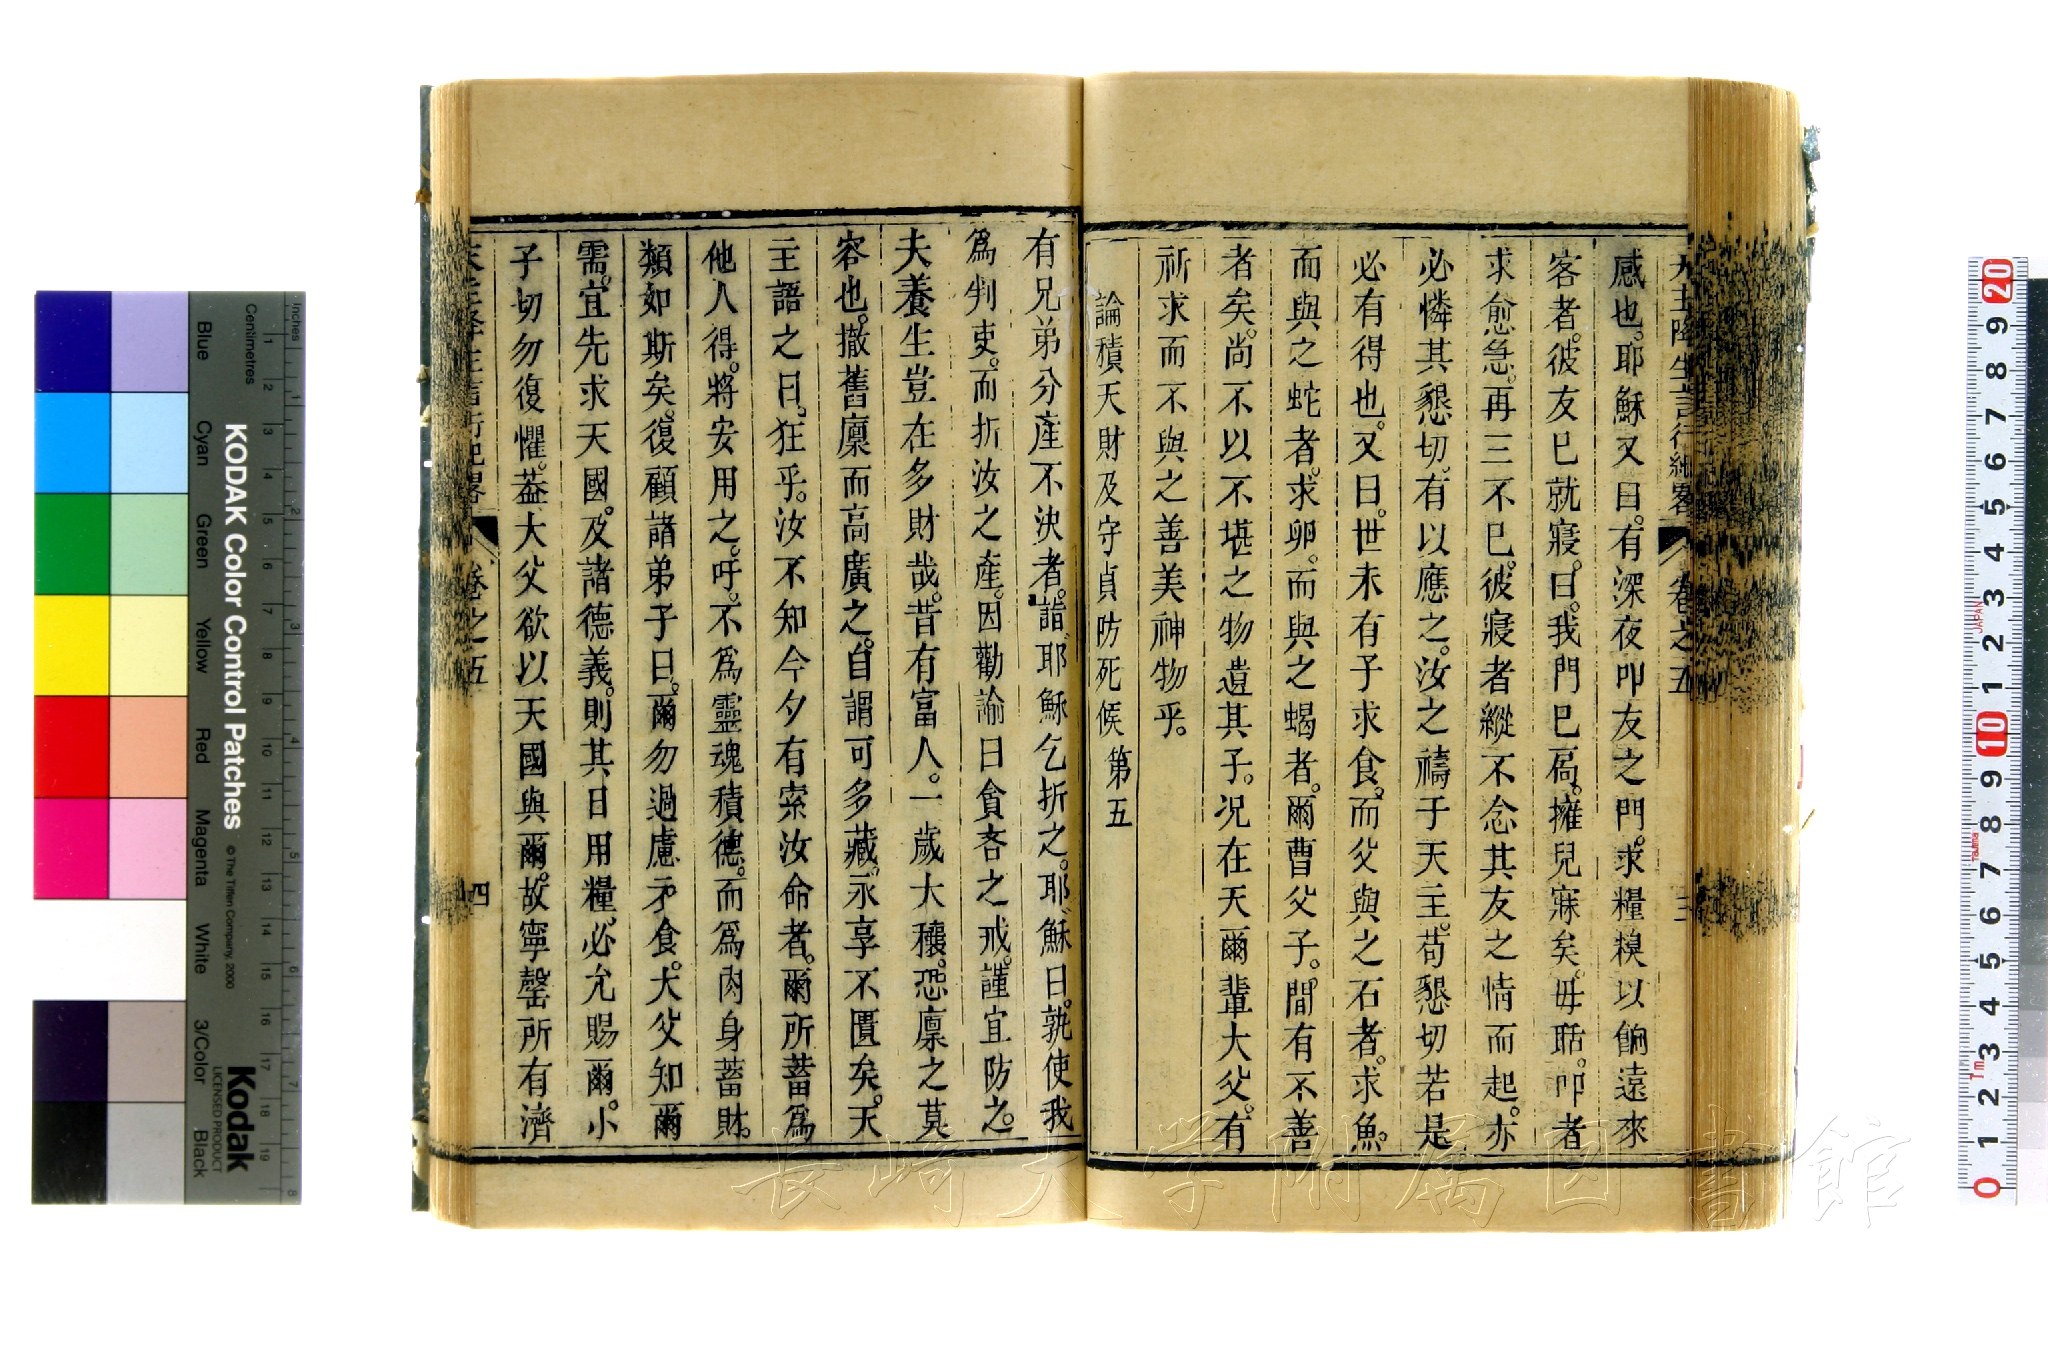 天主降生言行紀畧 卷之五 三
感也。耶穌又曰。有深夜叩友之門。求糧糗以餉遠來
客者。彼友已就寢。曰。我門已扃。擁兒寐矣。毋聒。叩者
求愈急。再三不已。彼寢者縱不念其友之情而起。亦
必憐其懇切。有以應之。汝之禱于天主。苟懇切若是
必有得也。又曰。世未有子求食。而父與之石者。求魚。
而與之蛇者。求卵。而與之蝎者。爾曹父子。間有不善
者矣。尚不以不堪之物遺其子。况在天爾輩大父。有
祈求而不與之善美神物乎。
論積天財及守貞防死候 第五
有兄弟分產不決者。詣耶穌乞折之。耶穌曰。孰使我
爲判吏。而折汝之產。因勸諭曰貪吝之戒。謹宜防之。
夫養生豈在多財哉。昔有富人。一歲大穰。恐廩之莫
容也。撤舊廩而高廣之。自謂可多藏。永享不匱矣。天
主語之曰。狂乎。汝不知今夕有索汝命者。爾所蓄爲
他人得。將安用之。吁。不爲靈魂積德。而爲肉身蓄財。
類如斯矣。復顧諸弟子曰。爾勿過慮矛食。大父知爾
需。宜先求天國。及諸德義。則其日用糧。必允賜爾。小
子切勿復懼。葢大父欲以天國與爾。故寧罄所有濟
天主降生言行紀畧 卷之五 四
長崎大学附属図書館
Inches
Centimetres
KODAK Color Control Patches
© The Tiffen Company, 2000
Kodak
LICENSED PRODUCT
Blue
Cyan
Green
Yellow
Red
Magenta
White
3/Color
Black
JAPAN
Tajima
Tm